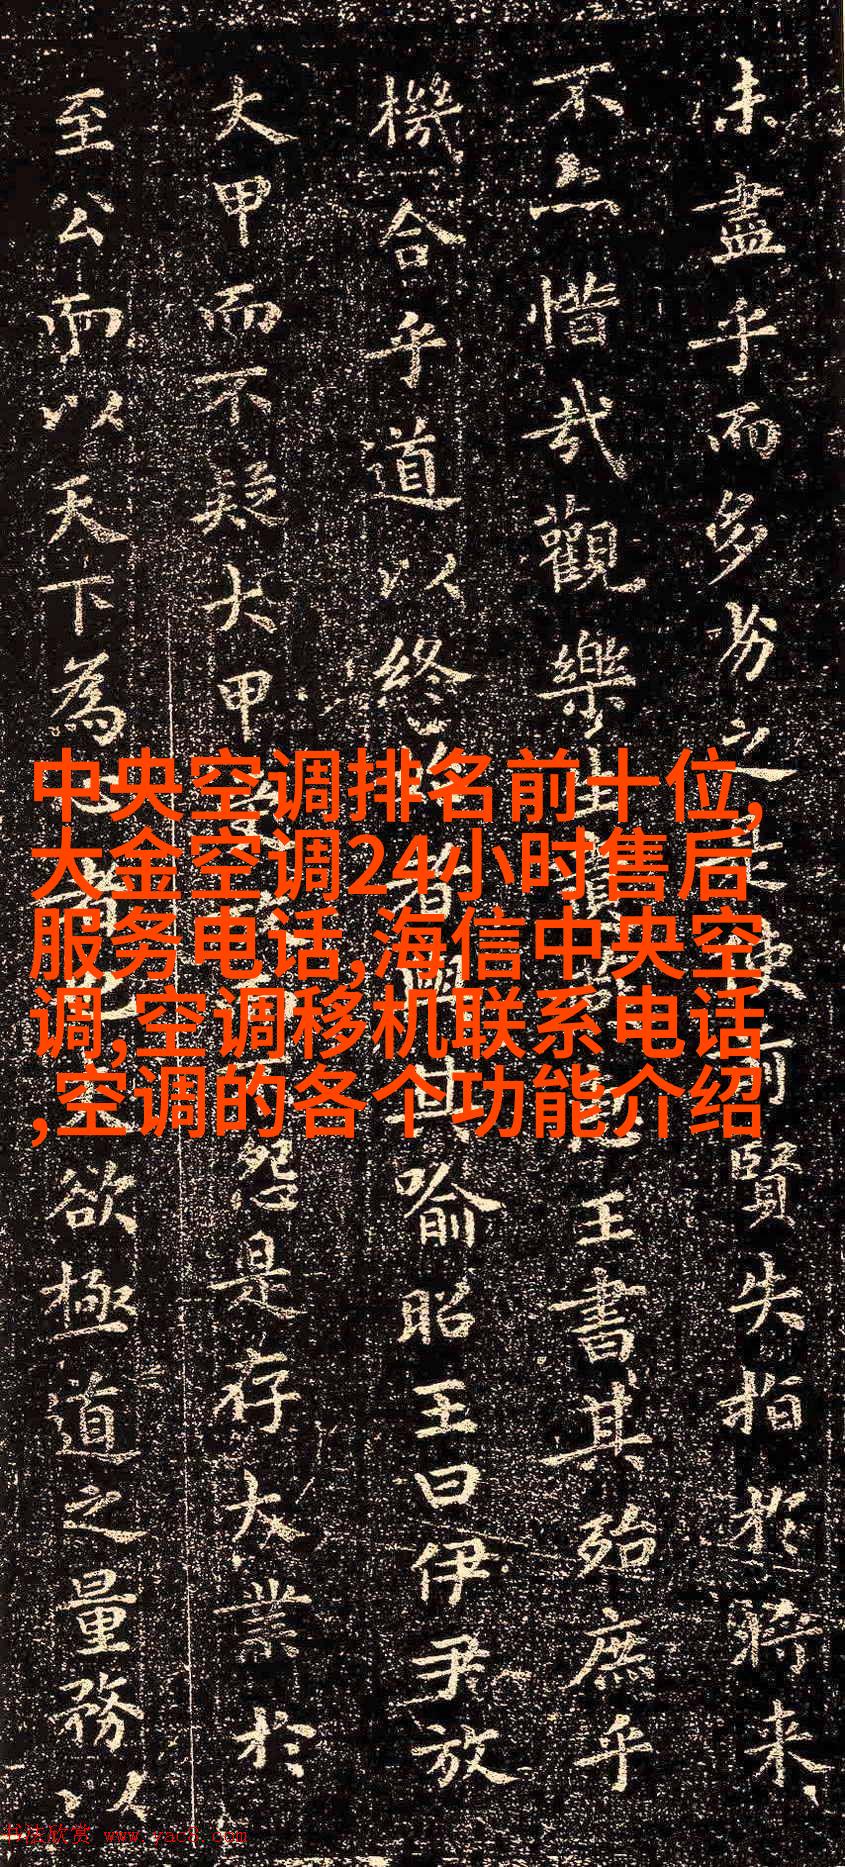 未盡乎而多劣之是使前賢失指於將来
不亦惜哉觀樂生遺王書其殆庶乎
機合乎道以終者與其喻昭王曰伊尹放
大甲而不疑大甲怨是存大業於
至公而以天下為者欲極道之量務以
中央空调排名前十位,
大金空调24小时售后
服务电话,海信中央空
调,空调移机联系电话
,空调的各个功能介绍
书法欣赏 www.yac8.com